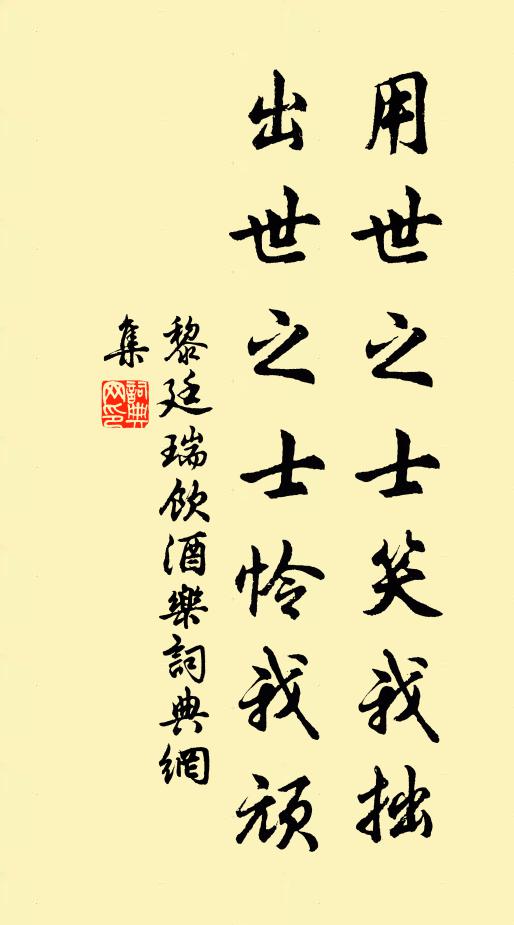 用世之士笑我拙
出世之士怜我頑
黎廷瑞飲酒樂詞典網
集
詞典網印